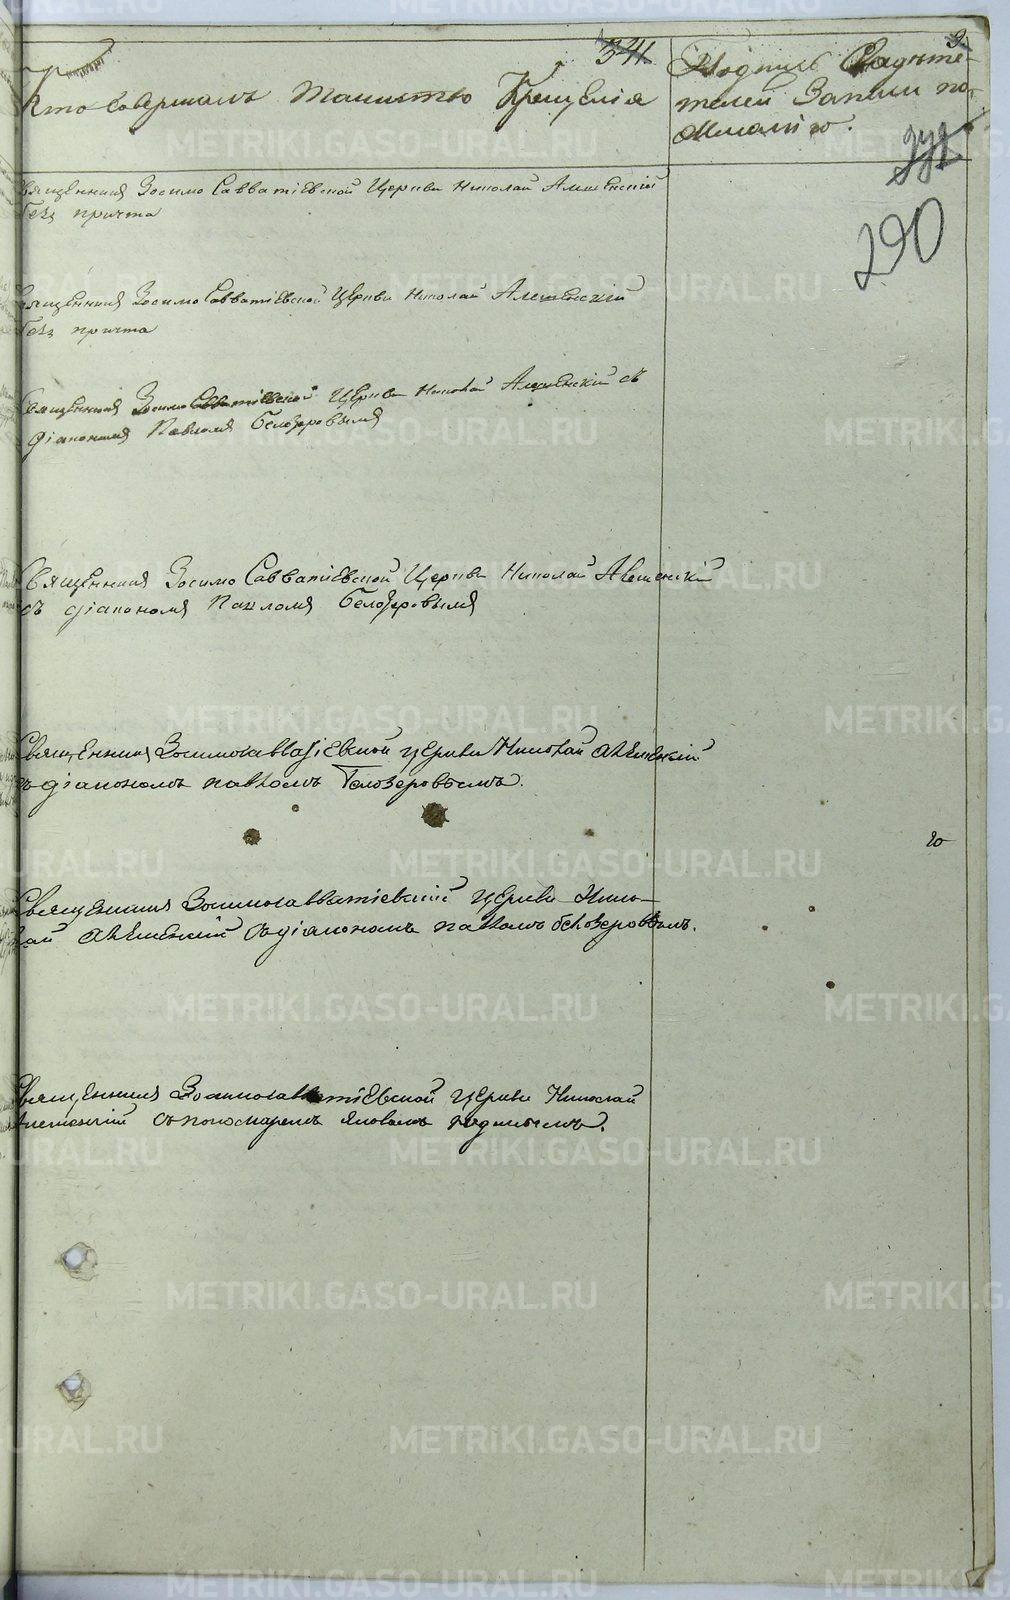 541
Кто совершалъ таинство Крещенія
Подпись Свидѣте-
телей Записи по
желанію.
290
Священникъ Зосимо Савватіевской Церкви Николай Алешенскій
безъ причта
Священникъ Зосимо Савватіевской Церкви Николай Алешенскій
безъ причта
Священникъ Зосимо Савватіевской Церкви Николай Алешенскій съ
діакономъ Павломъ Белозеровымъ
Священникъ Зосимо Савватіевской Церкви Николай Алешенскій
съ діакономъ Павломъ Белозеровымъ
Священникъ Зосимосавватіевской церкви Николай Алешенскій
съ діакономъ Павломъ Белозеровымъ.
Священникъ Зосимосавватіевской церкви Нико-
лай Алешенскій съ діакономъ Павломъ Белозеровымъ.
Священникъ Зосимосавватіевской церкви Николай
Алешенскій съ пономаремъ Яковомъ
METRIKI.GASO-URAL.RU